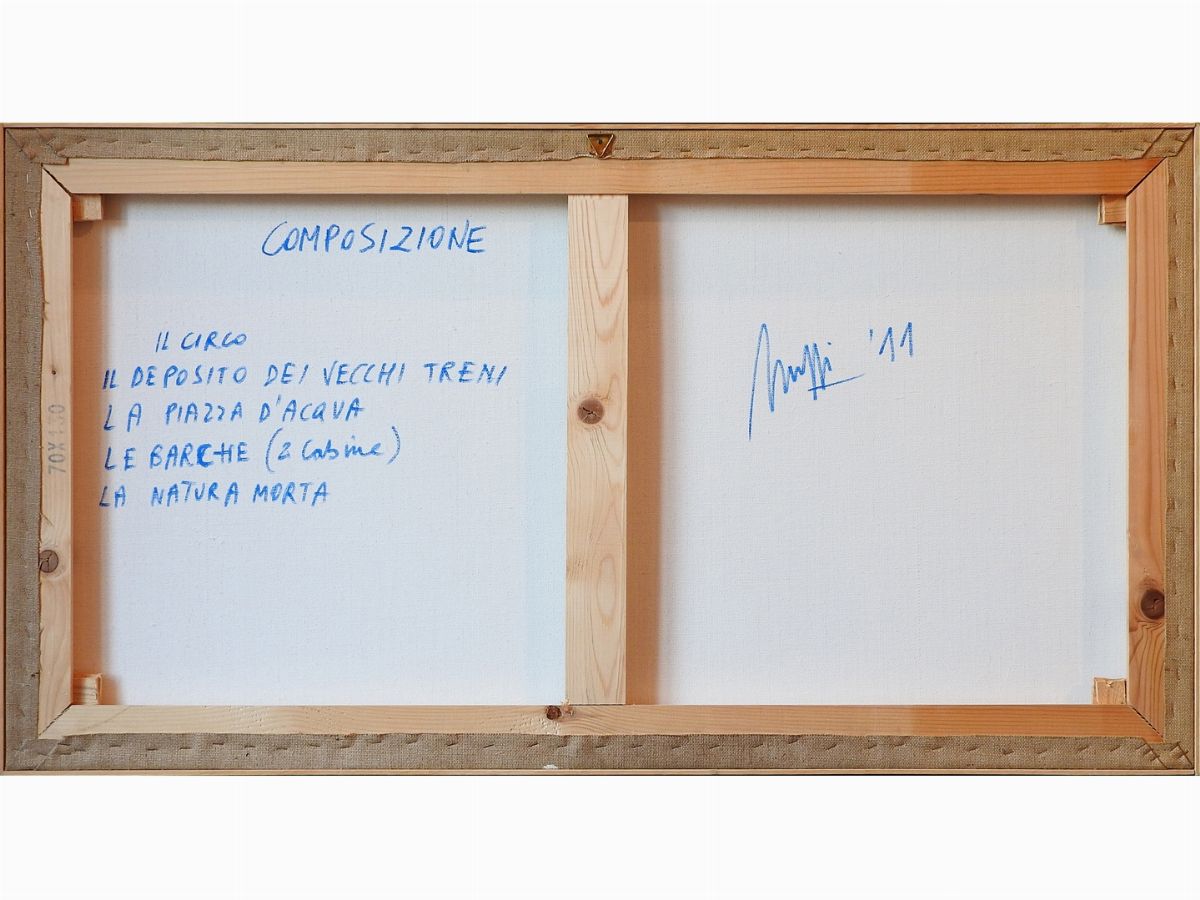 COMPOSIZIONE
IL CIRCO
IL DEPOSITO DEI VECCHI TRENI
LA PIAZZA D'ACQUA
LE BARCHE (2 Cabine)
LA NATURA MORTA
'11
70X130